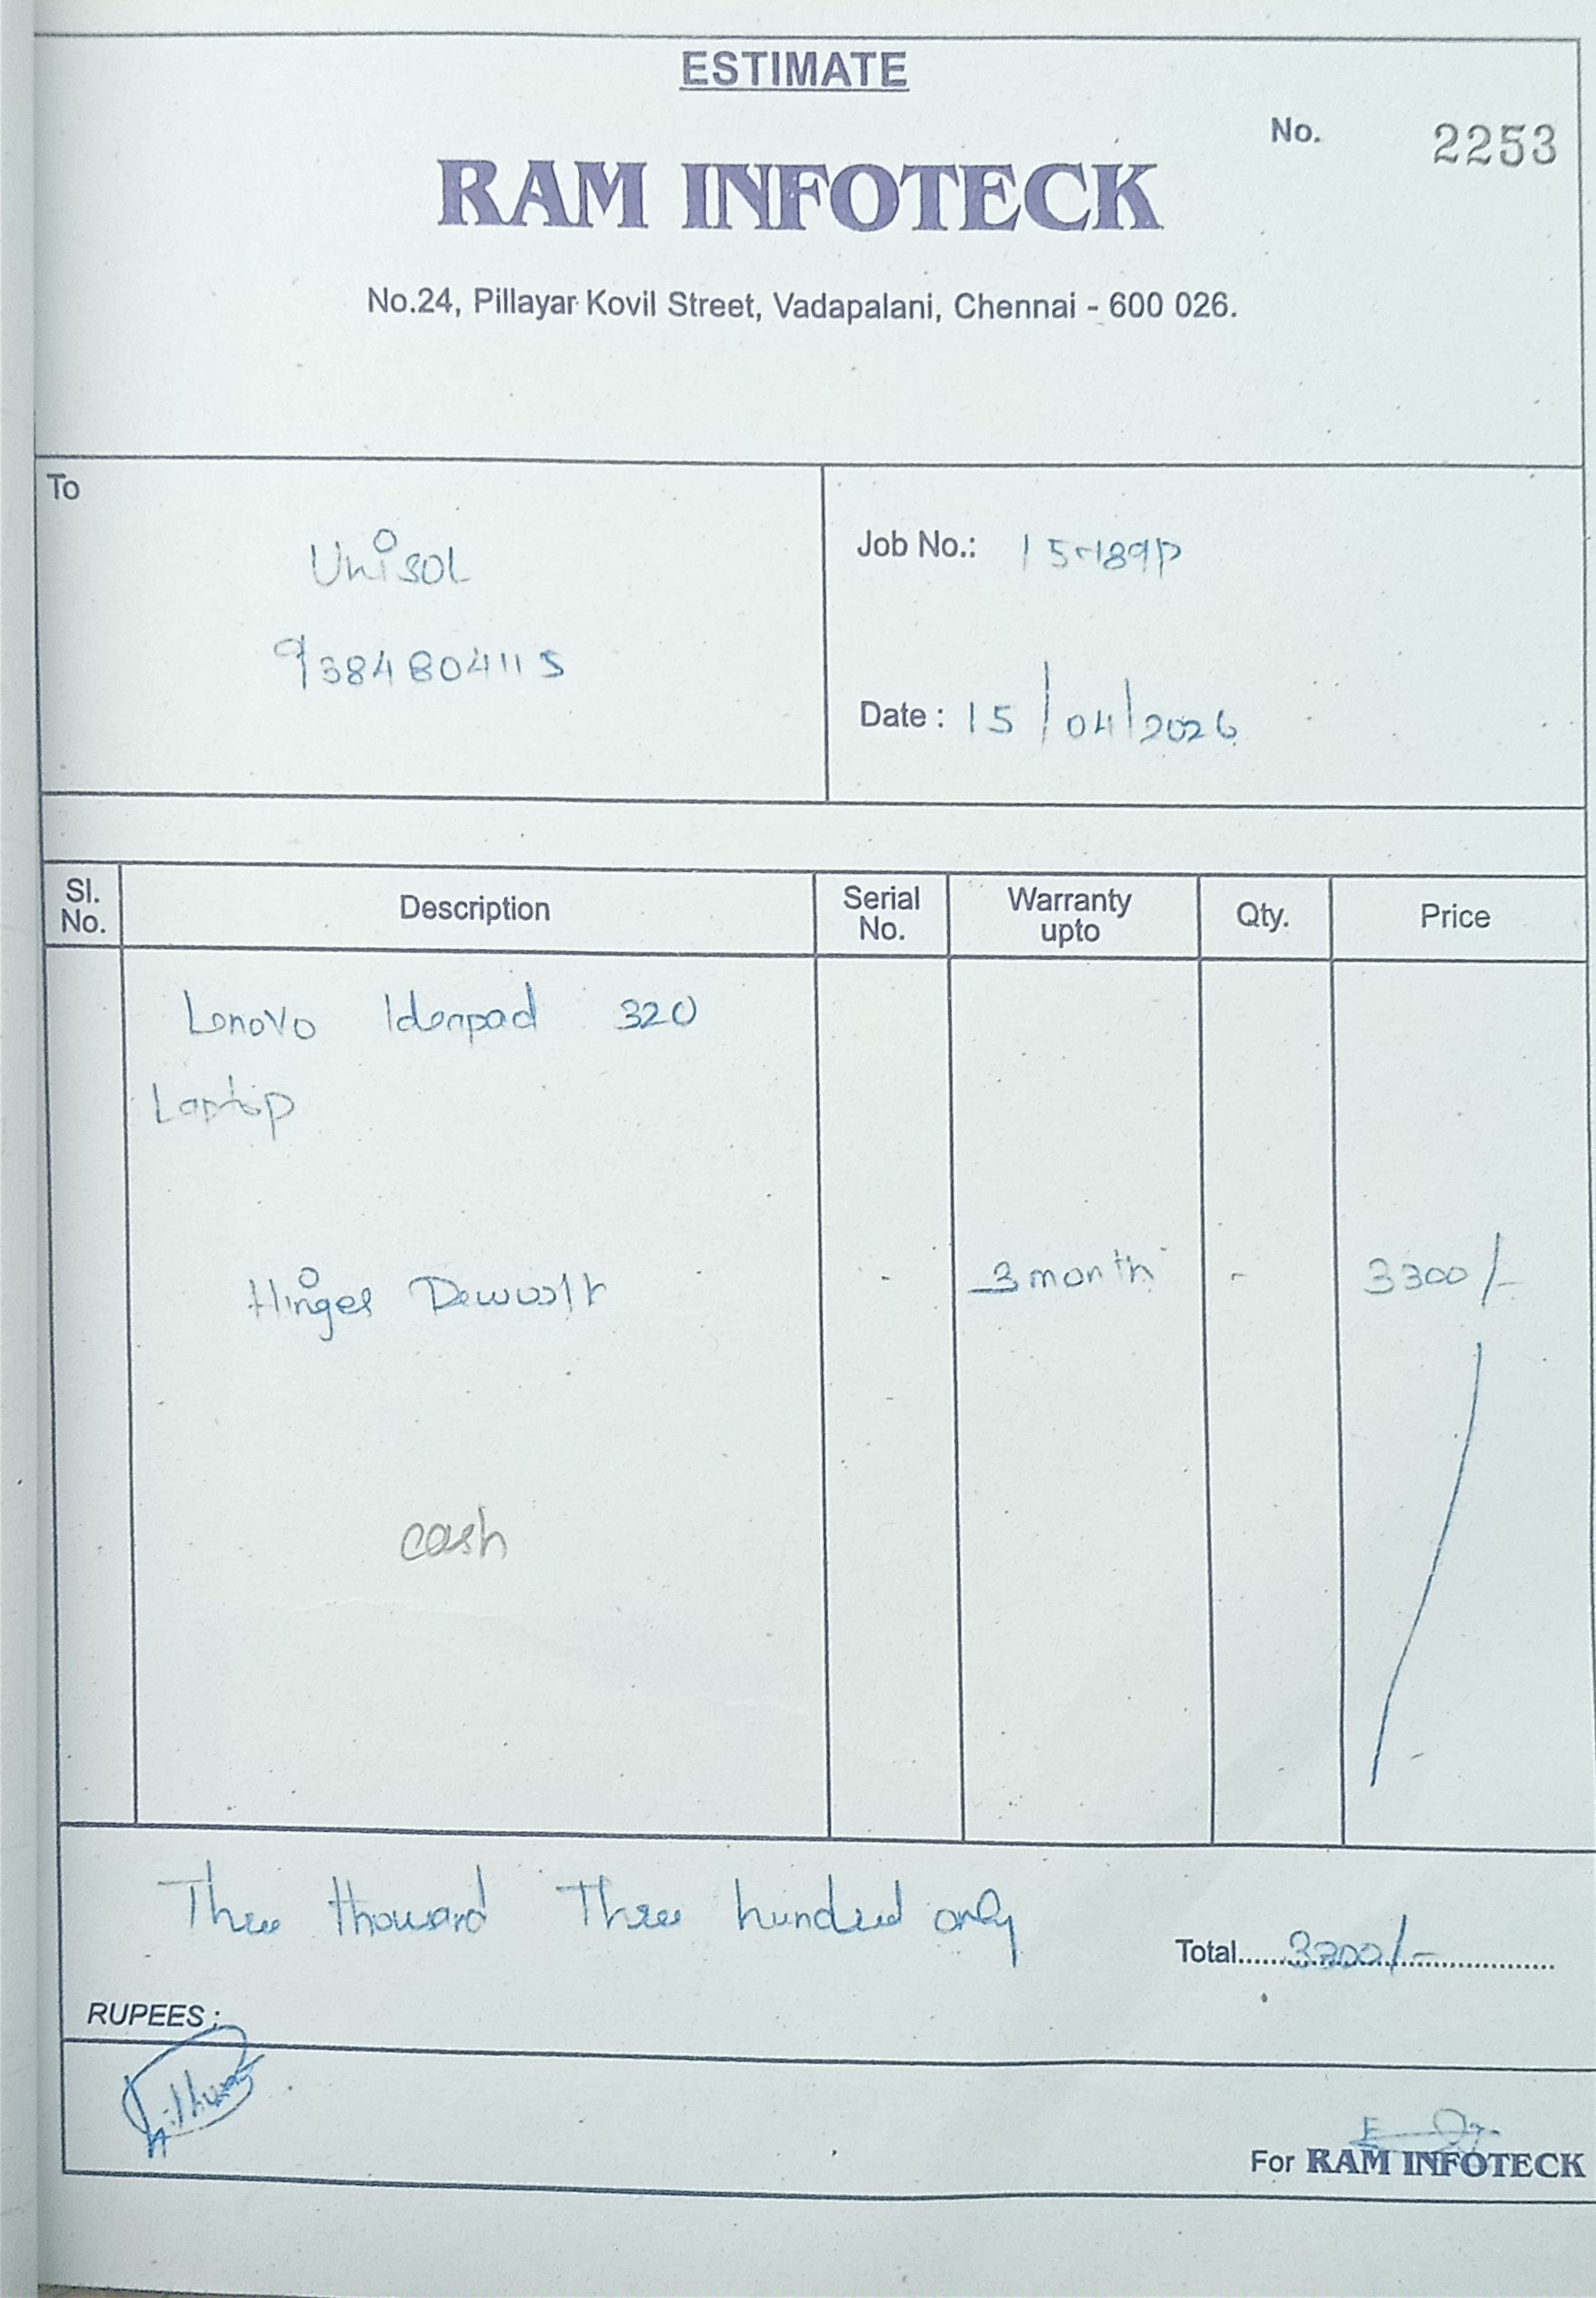 ESTIMATE
No. 2253
RAM INFOTECK
No.24, Pillayar Kovil Street, Vadapalani, Chennai - 600 026.
To
Unisol
9384804115
Job No.:
Date : 15/04/2026
Sl. No. Description Serial No. Warranty upto Qty. Price
Lenovo Ideapad 320
Laptop
Hinges - 3 month - 3300/-
cash
Three thousand Three hundred only
Total......3300/-......
RUPEES :
For RAM INFOTECK